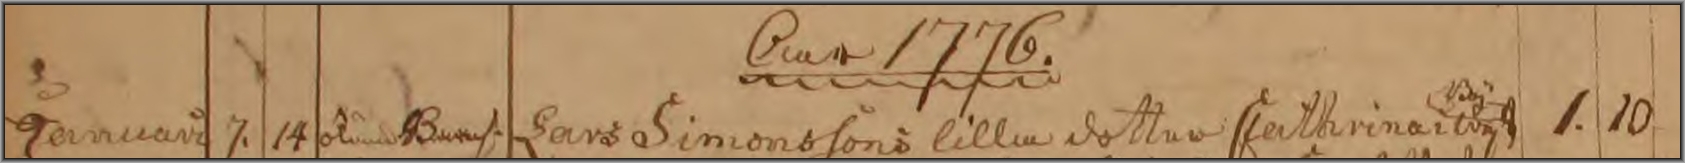 Anno 1776.
Januari 7. 14 Lars Simonssons lilla dotter Cathrina 1. 10